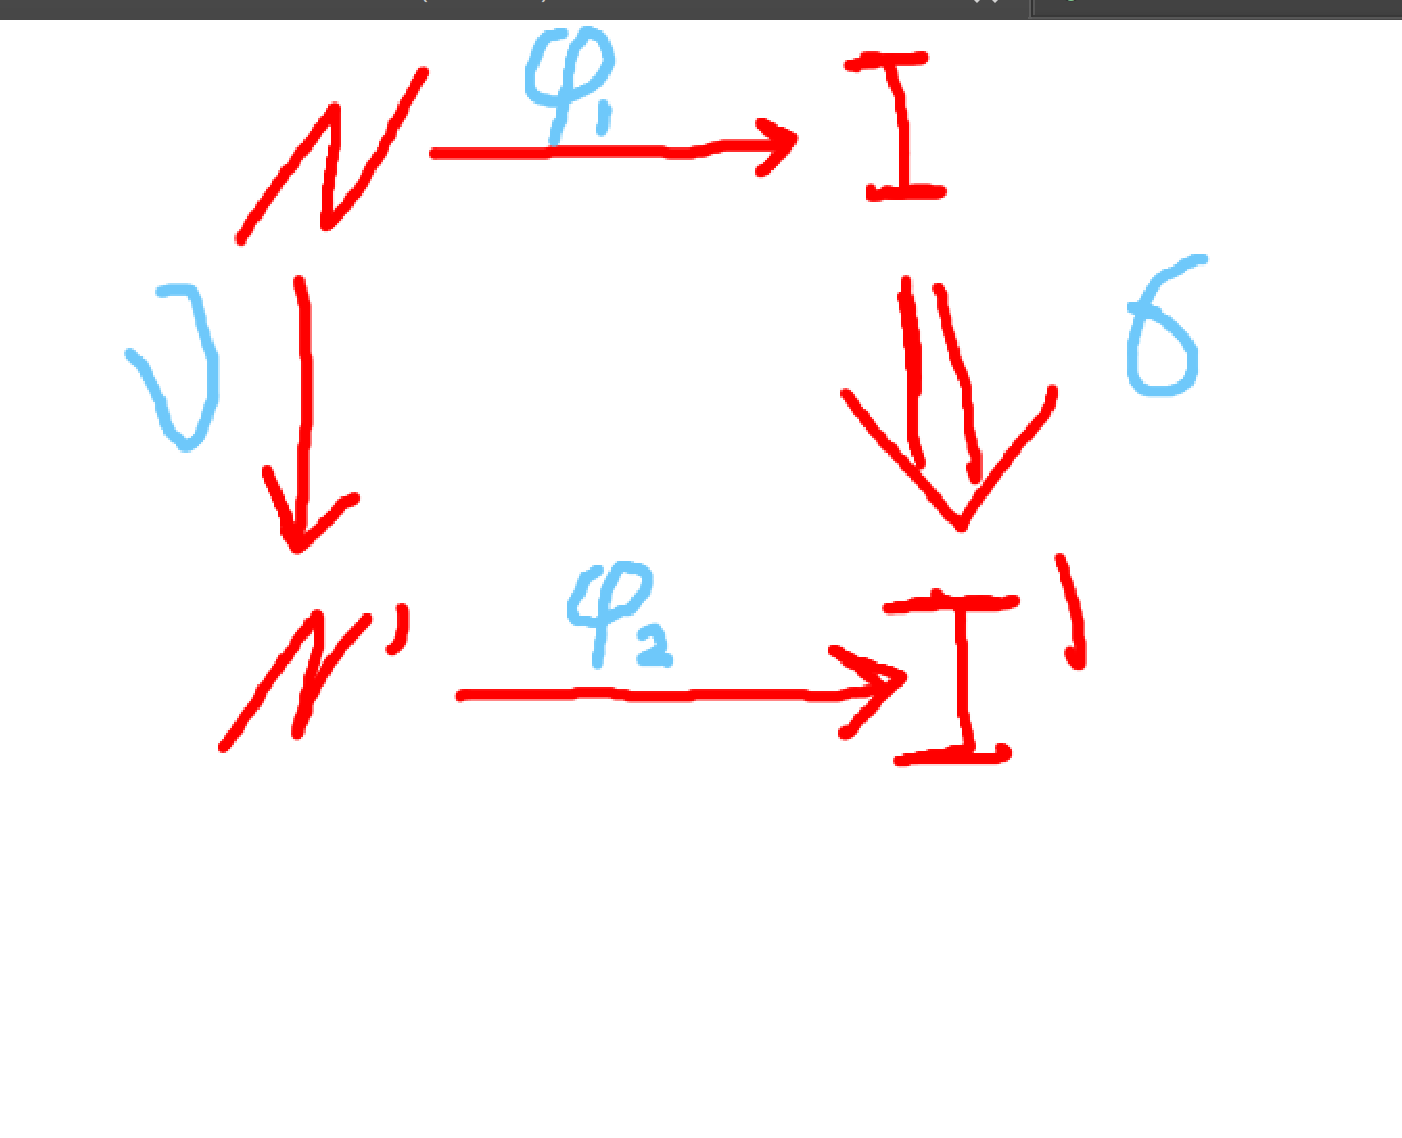 N φ₁ I
δ
N' φ₂ I'